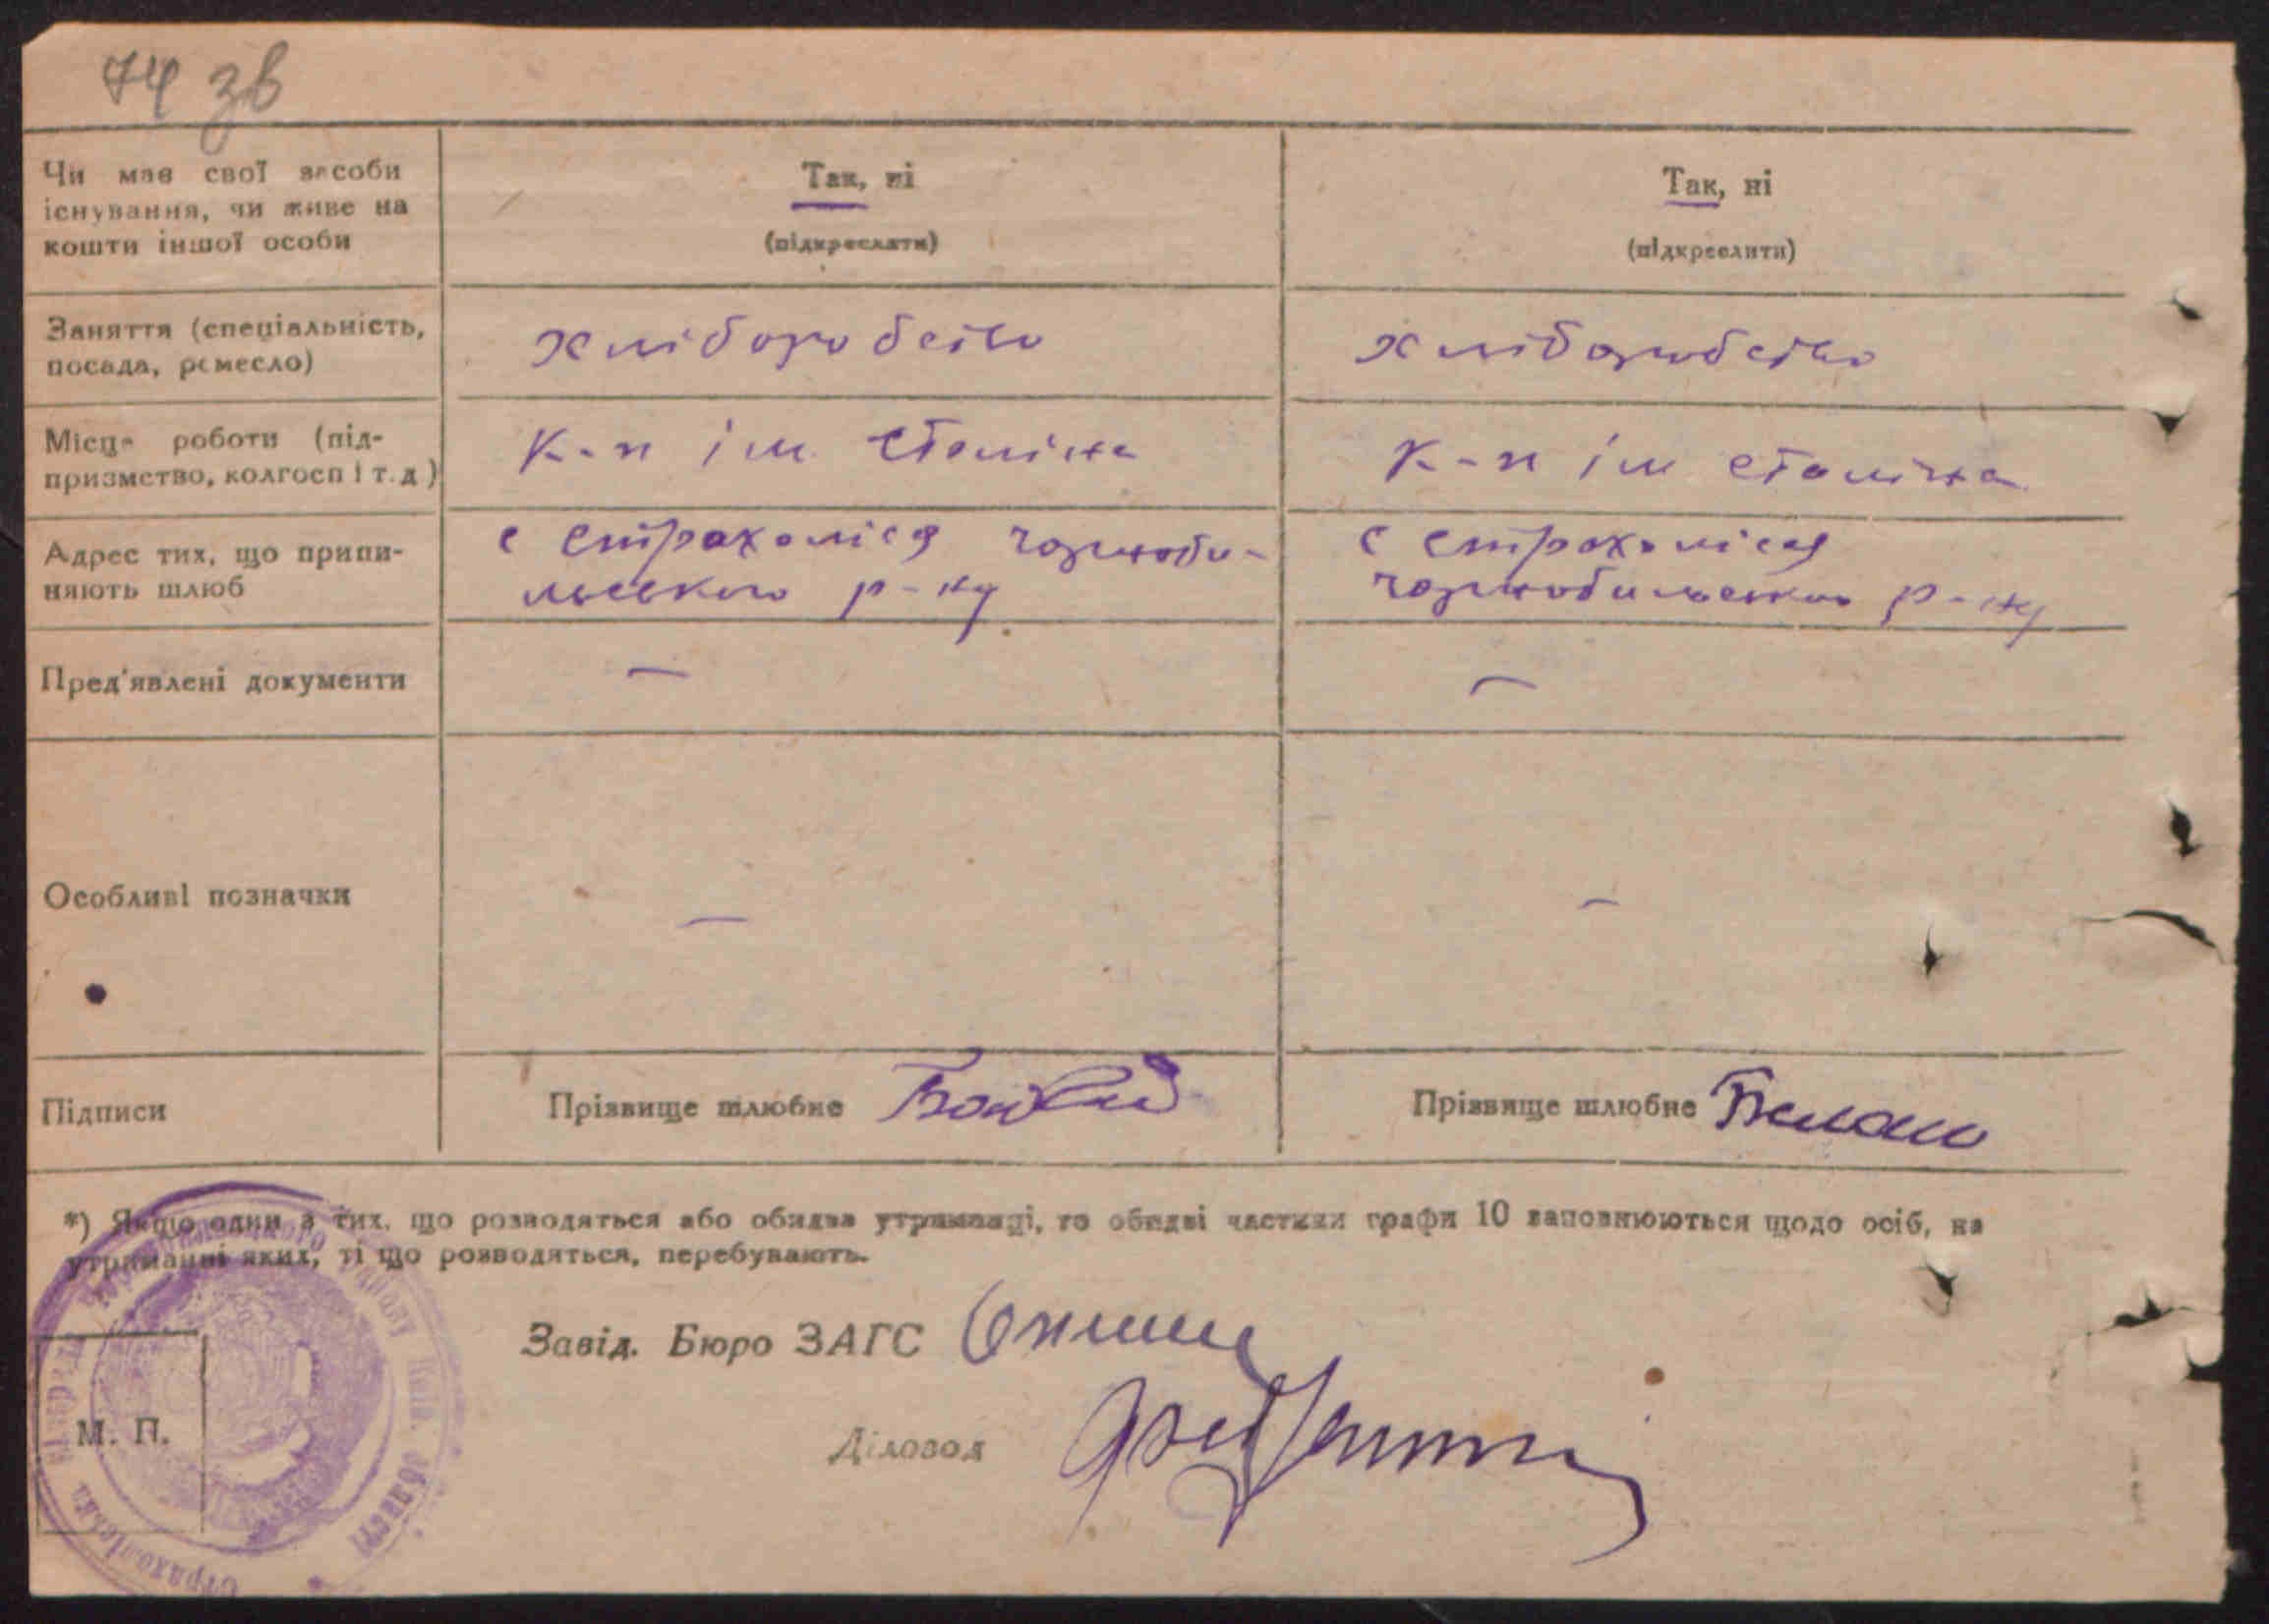 74 зв
Чи має свої засоби
існування, чи живе на
кошти іншої особи
Так, ні
(підкреслити)
Так, ні
(підкреслити)
Заняття (спеціальність,
посада, ремесло)
хліборобство
хліборобство
Місце роботи (під-
приємство, колгосп і т. д.)
К-п ім Сталіна
К-п ім Сталіна
Адрес тих, що припи-
няють шлюб
с Страхолісся Чорноби-
льського р-ну
с Страхолісся
Чорнобильського р-ну
Пред'явлені документи
—
—
Особливі позначки
—
—
Підписи
Прізвище шлюбне
Прізвище шлюбне
*) Якщо один з тих, що розводяться або обидва утриманці, то обидві частини графи 10 заповнюються щодо осіб, на
утриманні яких, ті що розводяться, перебувають.
Завід. Бюро ЗАГС
Діловод
М. П.
району Київ. області